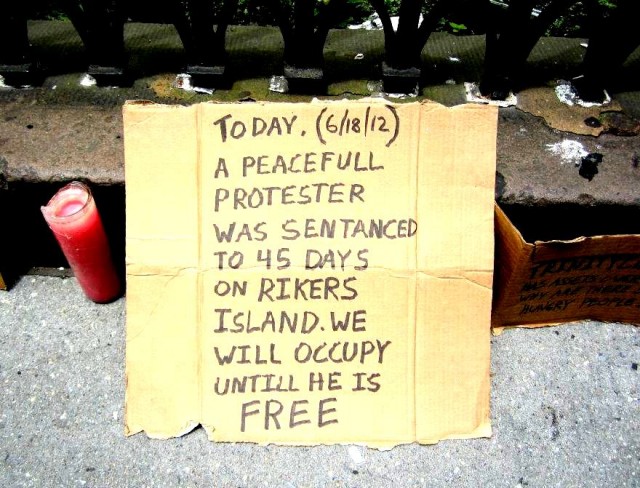 TODAY, (6/18/12)
A PEACEFULL
PROTESTER
WAS SENTANCED
TO 45 DAYS
ON RIKERS
ISLAND. WE
WILL OCCUPY
UNTILL HE IS
FREE
TRINITY
HUNGRY PEOPLE